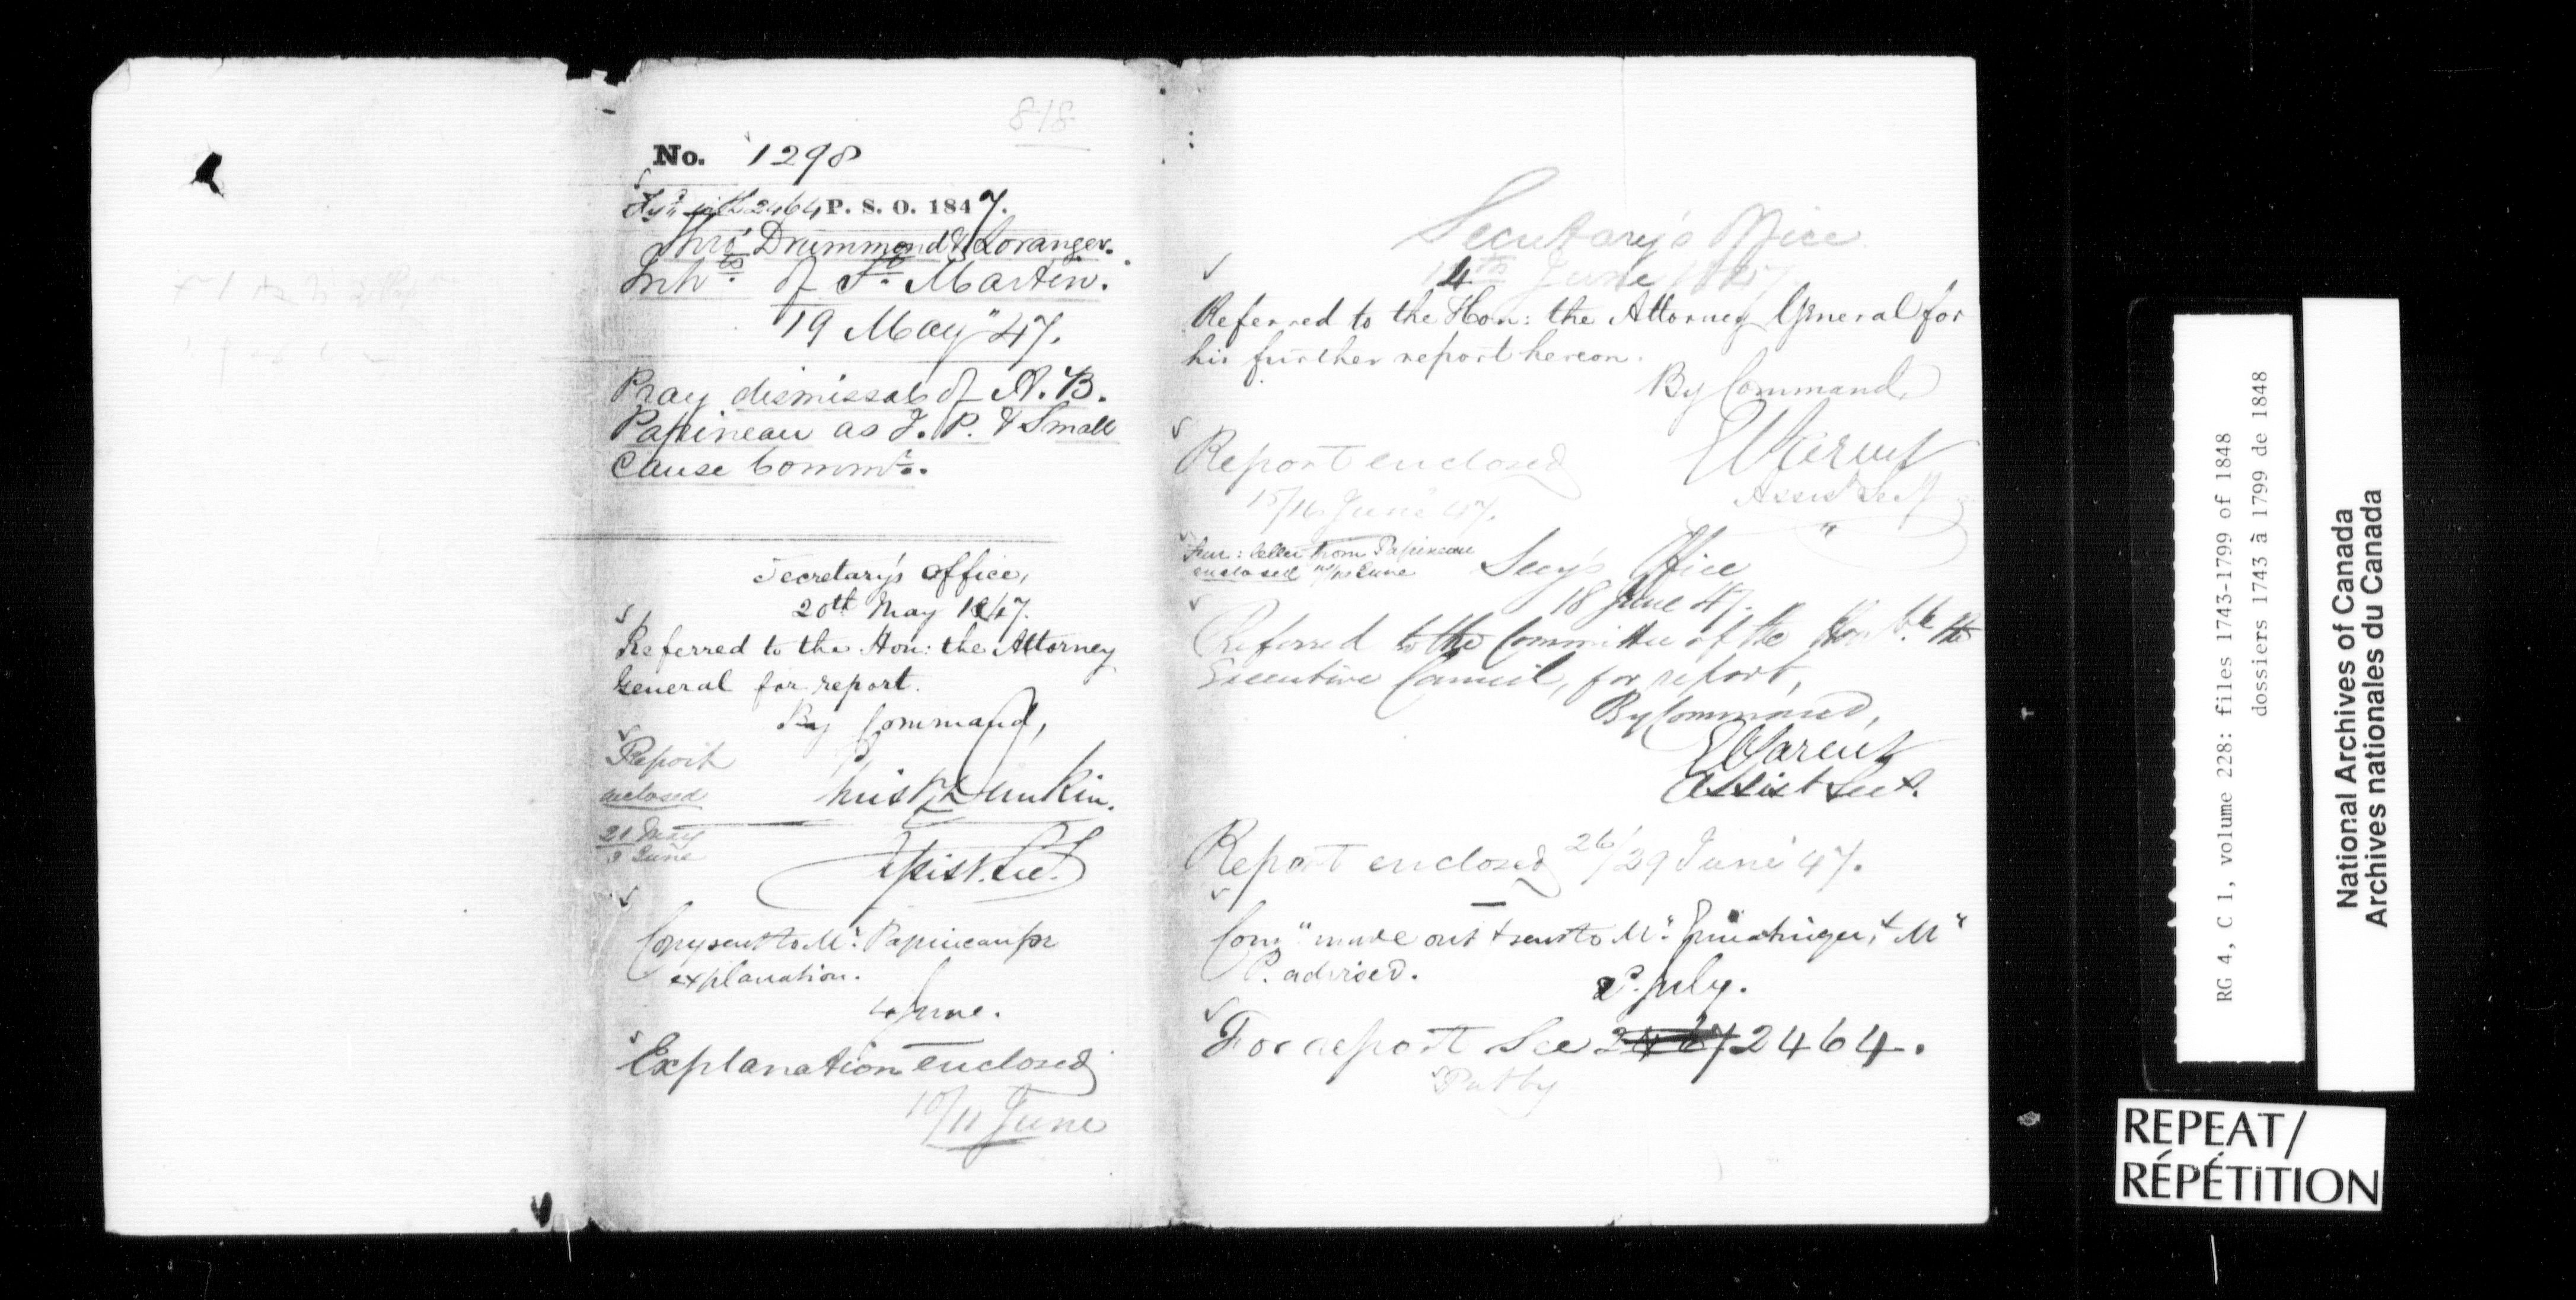 818
No. 1298
with 2464 P. S. O. 1847.
Thro' Drummond & Loranger.
Inhts. of St. Martin.
19 May "47.
Pray dismissal of A. B.
Papineau as J. P. & Small
Cause Commr.
Secretary's Office,
20th May 1847.
Referred to the Hon: the Attorney
General for report.
By Command,
Report
enclosed
Christ. Dunkin.
21 May
3 June
Assist. Sec.
Copy sent to Mr. Papineau for
explanation.
4 June.
Explanation enclosed
10/11 June
Secretary's Office
14th June 1847
Referred to the Hon: the Attorney General for
his further report hereon.
By Command,
E Parent
Assist Secy
Report enclosed
15/16 June 47.
Fur: letter from Papineau
enclosed June
Secy's Office
18 June 47.
Referred to the Committee of the Honble. the
Executive Council, for report,
By Command,
E Parent
Assist Sect.
Report enclosed 26/29 June 47.
Comn "made out & sent to Mr. & Mr
P. advised.
2 July.
For report See 2464.
Put by
RG 4, C 1, volume 228: files 1743-1799 of 1848
dossiers 1743 à 1799 de 1848
National Archives of Canada
Archives nationales du Canada
REPEAT/
RÉPÉTITION